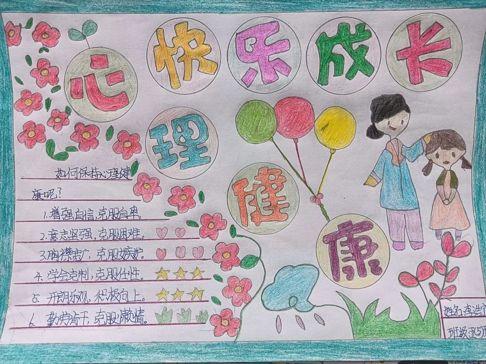 快乐成长
心理健康
如何保持心理健
康呢?
1.增强自信,克服自卑。
2.意志坚强,克服困难。
3.胸襟宽广,克服嫉妒。
4.学会克制,克服任性。
5.开朗乐观,积极向上。
6.勤劳肯干,克服懒惰。
姓名
班级